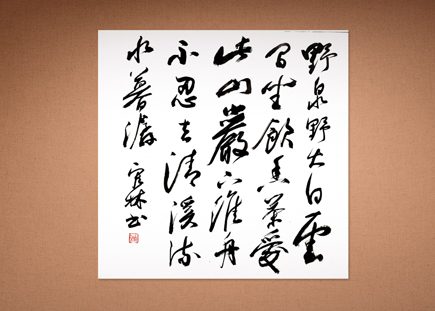 野泉烟火白雲
間坐飲香茶愛
此山巖下維舟
不忍去清溪流
水暮潺潺
林书